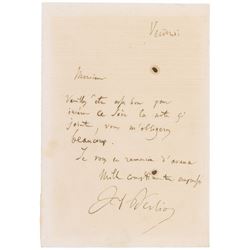 Vendredi
Monsieur
Veuillez être assez bon pour
insérer ce soir la note ci
jointe, vous m'obligerez
beaucoup.
Je vous en remercie d'avance
Mille compliments empressés
H. Berlioz